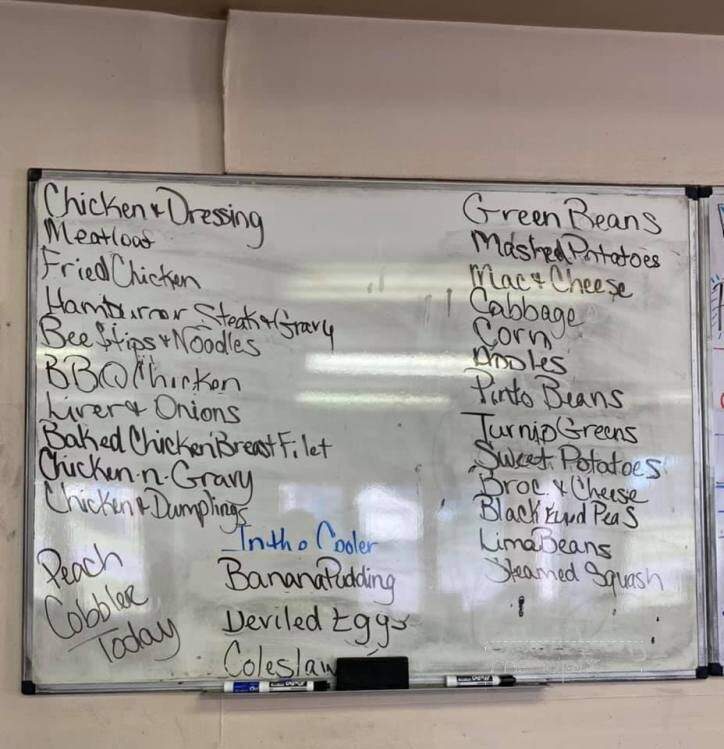 Chicken & Dressing
Meatloaf
Fried Chicken
Hamburger Steak & Gravy
Beef tips & Noodles
BBQ Chicken
Liver & Onions
Baked Chicken Breast Filet
Chicken-n-Gravy
Chicken & Dumplings
Peach
Cobbler
Today
In the Cooler
Banana Pudding
Deviled Eggs
Coleslaw
Green Beans
Mashed Potatoes
Mac & Cheese
Cabbage
Corn
Apples
Pinto Beans
Turnip Greens
Sweet Potatoes
Broc & Cheese
Black Eyed Peas
Lima Beans
Steamed Squash